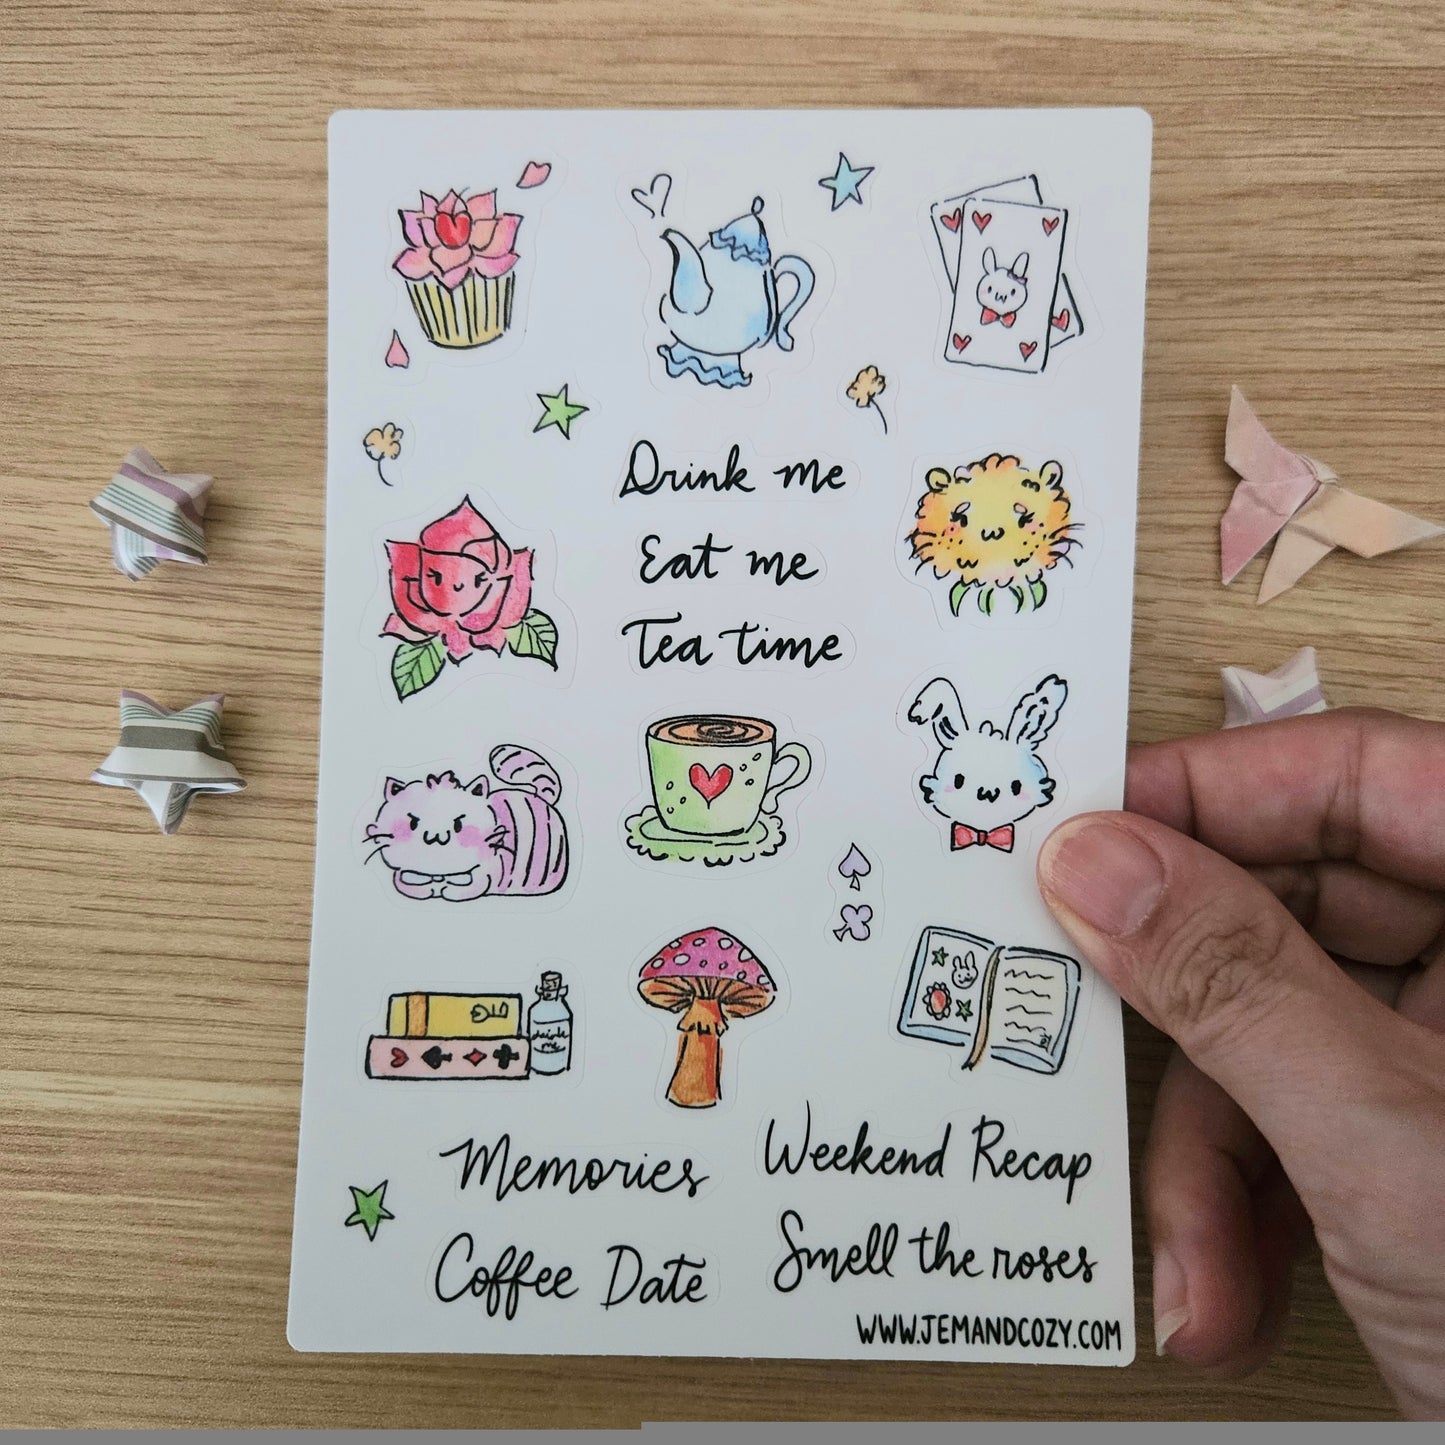 Drink me
Eat me
Tea time
drink
me
Memories
Weekend Recap
Coffee Date
Smell the roses
WWW.JEMANDCOZY.COM